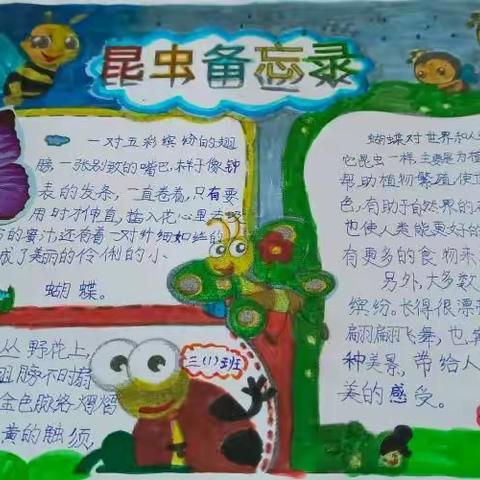 昆虫备忘录
一对五彩缤纷的翅
膀,一张别致的嘴巴,样子像钟
表的发条,一直卷着,只有要
用时才伸直,插入花心里去吸
的蜜汁,还有着一对纤细如丝的
成了美丽的伶俐的小
蝴蝶。
丛野花上,
翅膀不时扇
金色脉络熠熠
黄的触须,
三(1)班
蝴蝶对世界和人
它昆虫一样,主要是为植
帮助植物繁殖,使世
色,有助于自然界的
也使人类能更好的
有更多的食物来
另外,大多数
缤纷。长得很漂
翩翩飞舞,也
种美景,带给人
美的感受。